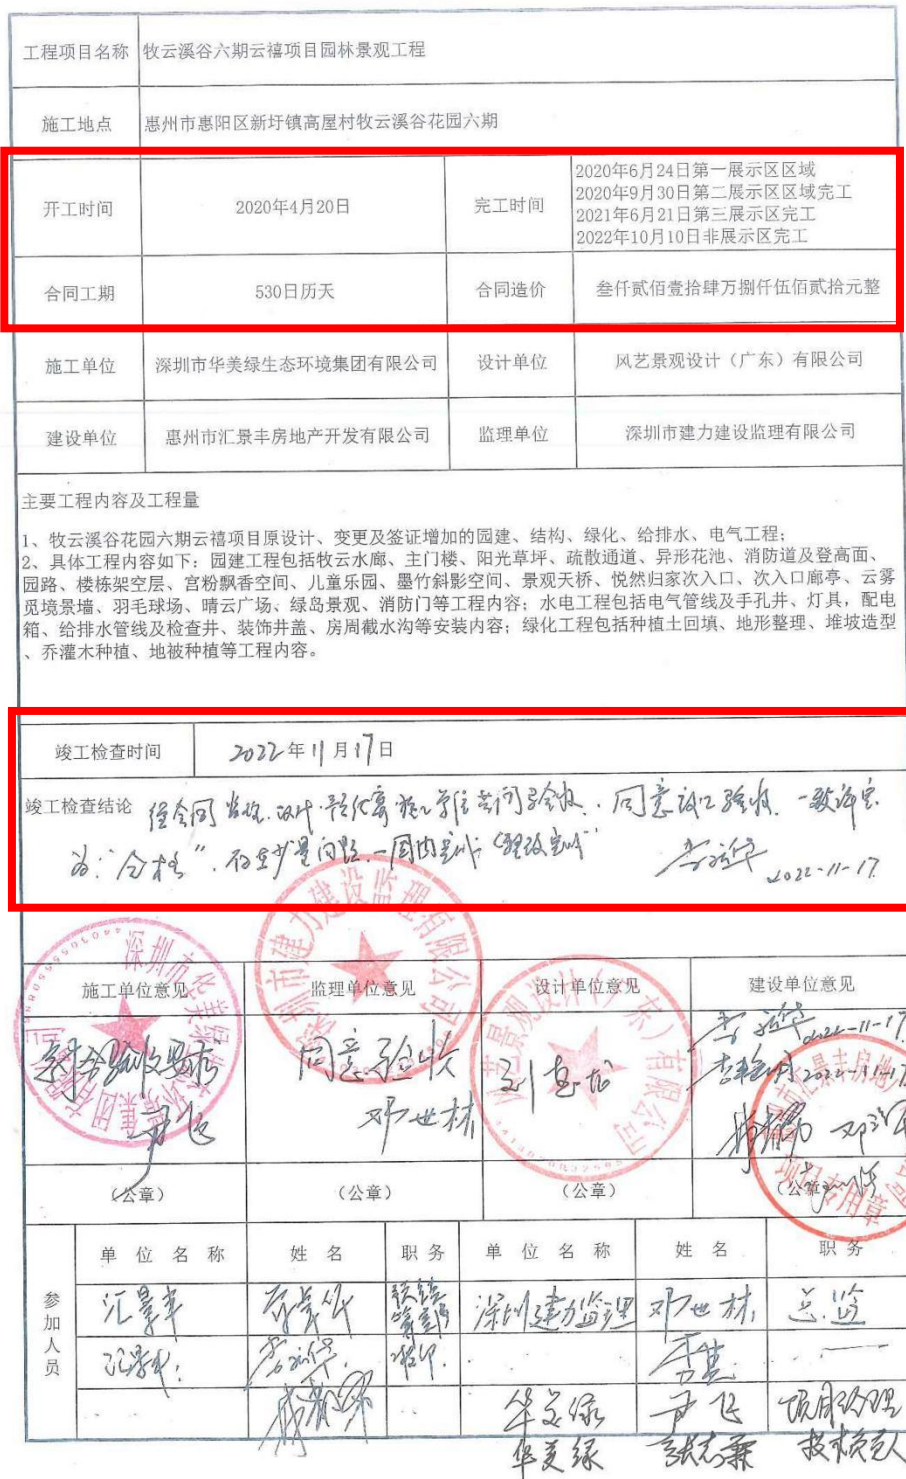 工程项目名称 牧云溪谷六期云禧项目园林景观工程
施工地点 惠州市惠阳区新圩镇高屋村牧云溪谷花园六期
开工时间 2020年4月20日 完工时间
2020年6月24日第一展示区区域
2020年9月30日第二展示区区域完工
2021年6月21日第三展示区完工
2022年10月10日非展示区完工
合同工期 530日历天 合同造价 叁仟贰佰壹拾肆万捌仟伍佰贰拾元整
施工单位 深圳市华美绿生态环境集团有限公司 设计单位 风艺景观设计（广东）有限公司
建设单位 惠州市汇景丰房地产开发有限公司 监理单位 深圳市建力建设监理有限公司
主要工程内容及工程量
1、牧云溪谷花园六期云禧项目原设计、变更及签证增加的园建、结构、绿化、给排水、电气工程；
2、具体工程内容如下：园建工程包括牧云水廊、主门楼、阳光草坪、疏散通道、异形花池、消防道及登高面、
园路、楼栋架空层、宫粉飘香空间、儿童乐园、墨竹斜影空间、景观天桥、悦然归家次入口、次入口廊亭、云雾
觅境景墙、羽毛球场、晴云广场、绿岛景观、消防门等工程内容；水电工程包括电气管线及手孔井、灯具，配电
箱、给排水管线及检查井、装饰井盖、房周截水沟等安装内容；绿化工程包括种植土回填、地形整理、堆坡造型
、乔灌木种植、地被种植等工程内容。
竣工检查时间 2022年11月17日
竣工检查结论 同意竣工验收，一致评定
为：“合格”，存在少量问题，一周内完成
2022-11-17
施工单位意见 监理单位意见 设计单位意见 建设单位意见
2022-11-17
同意验收 2022-11-17
尹飞 邓世林
（公章） （公章） （公章） （公章）
单位名称 姓名 职务 单位名称 姓名 职务
参加人员
汇景丰 深圳建力监理 邓世林 总监
汇景丰
华美绿 尹飞 项目经理
华美绿 技术负责人